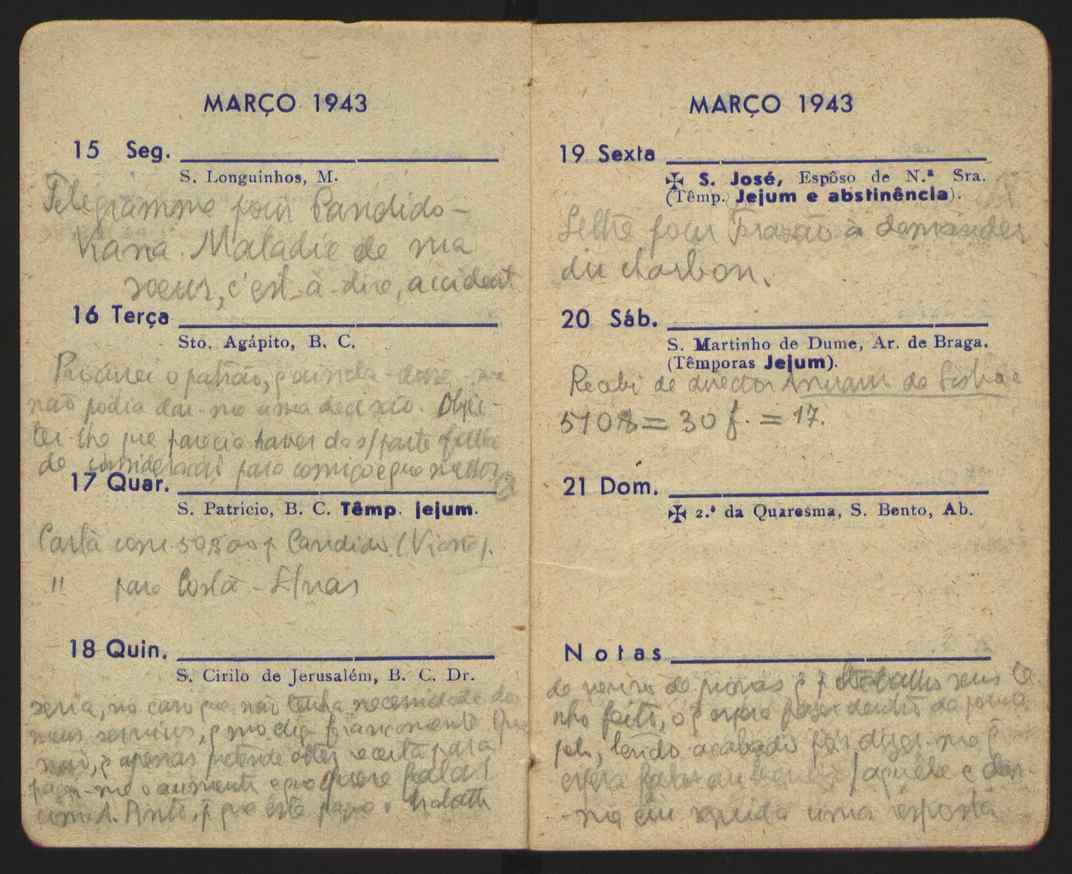 MARÇO 1943
15 Seg.
S. Longuinhos, M.
Telegramme pour Candido-
Viana. Maladie de ma
soeur, c'est-à-dire, accident
16 Terça
Sto. Agápito, B. C.
Procurei o patrão, q ainda disse
não podia dar-me uma decisão. Objec-
tei-lhe que parecia haver da s/ parte falta
de consideração para comigo e que
17 Quar.
S. Patrício, B. C. Têmp. jejum.
Carta com 50$00 p Candido (Viana).
" para Costa - Elvas
18 Quin.
S. Cirilo de Jerusalém, B. C. Dr.
seria, no caso que não tenha necessidade dos
meus serviços, q mo diga francamente
q apenas pretende obter receita para
o aumento quero falar
este papo o trabalho
MARÇO 1943
19 Sexta
✠ S. José, Espôso de N.ª Sra.
(Têmp. Jejum e abstinência).
Lettre pour Frazão à demander
du charbon.
20 Sáb.
S. Martinho de Dume, Ar. de Braga.
(Têmporas Jejum).
Recebi de director Anuario de Lisboa
510$ = 30 f. = 17.
21 Dom.
✠ 2.ª da Quaresma, S. Bento, Ab.
Notas
de revisão de provas q p trabalhos seus te-
nho feito, o q espero fazer dentro da
tendo acabado por dizer-me q
espera falar àquêle e dar-
-me em seguida uma resposta